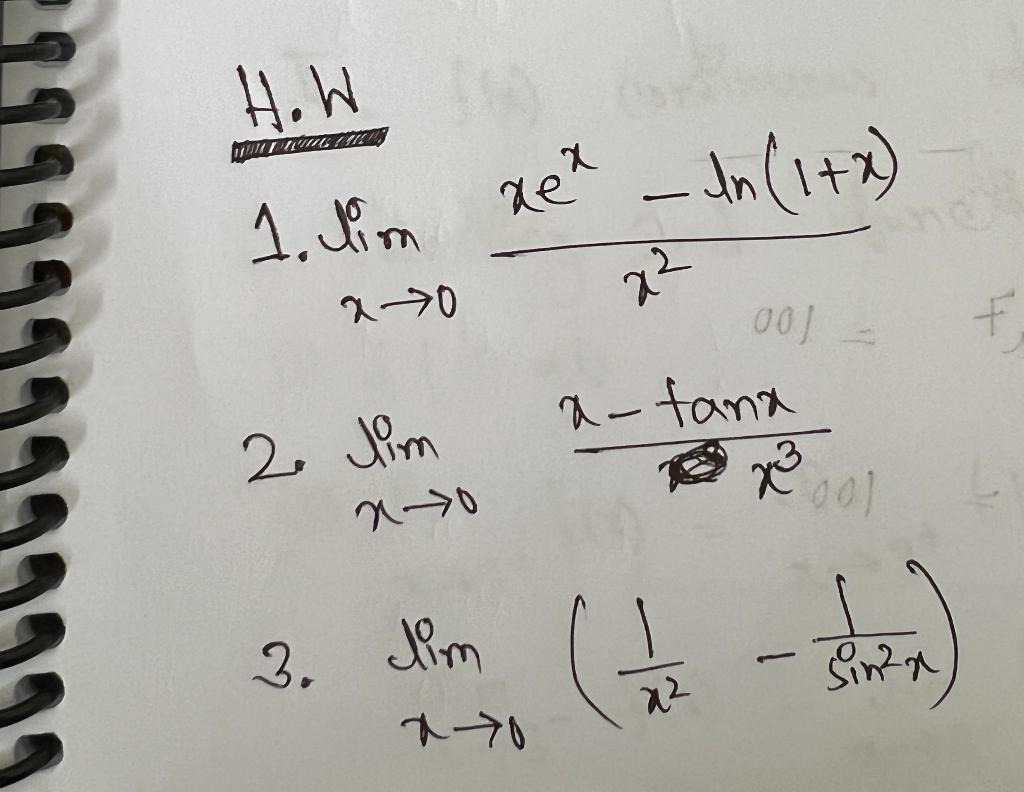 H.W
1. lim x→0 (xeˣ - ln(1+x)) / x²
2. lim x→0 (x - tanx) / x³
3. lim x→0 (1/x² - 1/sin²x)
= 100